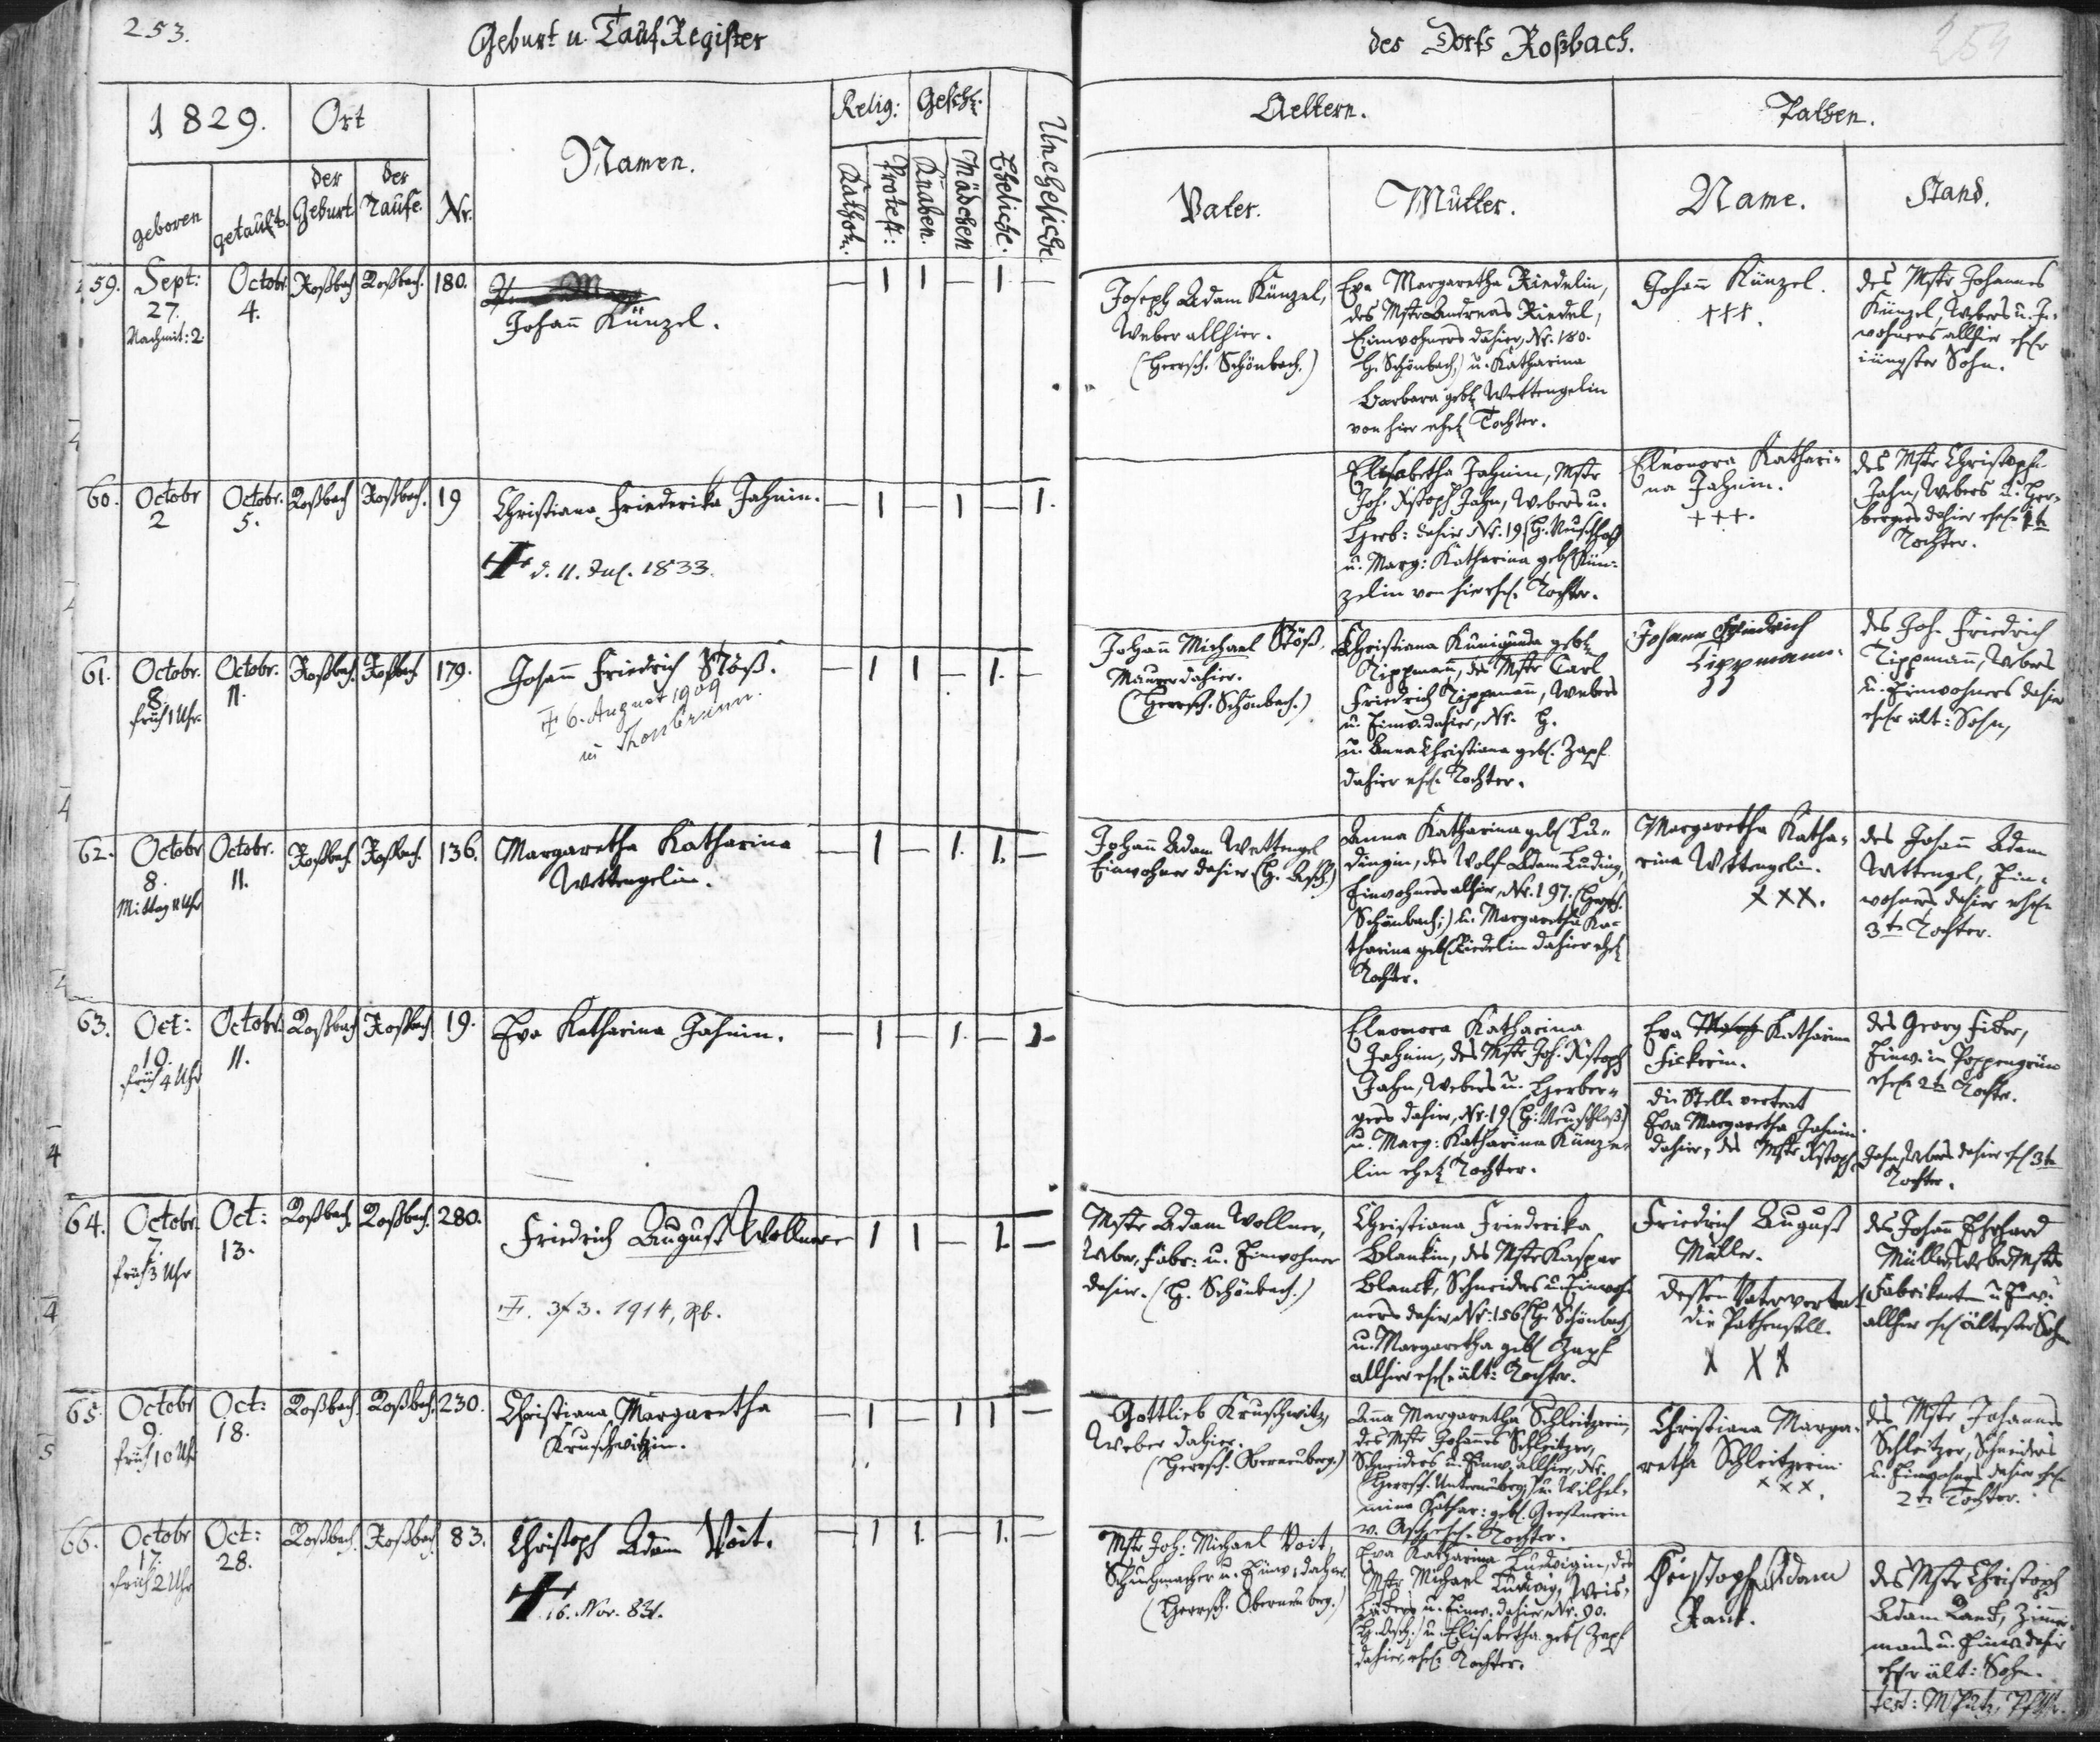 253.
Geburt u. Tauf Register
des Dorfs Roßbach.
254
1829.
Ort
Namen.
Relig:
Geschl:
Aeltern.
Pathen.
geboren
getauft.
der Geburt
der Taufe.
Nr.
Kathol:
Protest:
Knaben.
Mädchen
Eheliche.
Uneheliche.
Vater.
Mutter.
Name.
Stand.
59.
Sept:
27.
Nachmit: 2.
Octobr.
4.
Roßbach
Roßbach.
180.
Johann Künzel.
— 1 1 — 1. —
Joseph Adam Künzel,
Weber allhier.
(Herrsch. Schönbach.)
Eva Margaretha Riedelin,
des Mstr Andreas Riedel,
Einwohners dahier, Nr. 180.
H. Schönbach,) u. Katharina
Barbara gebl Wettengelin
von hier ehel Tochter.
Johann Künzel.
+++.
des Mstr Johannes
Künzel, Webers u. In-
wohners allhier ehel
jüngster Sohn.
60.
Octobr
2
Octobr.
5.
Roßbach
Roßbach.
19
Christiana Friederika Jahnin.
+ d. 11. Jul. 1833.
— 1 — 1 — 1.
Elisabetha Jahnin, Mstr
Joh. Xstoph Jahn, Webers u.
Herb: dahier Nr. 19 (H. Neuschloß
u. Marg: Katharina geb. Kün-
zelin von hier ehel. Tochter.
Eleonora Kathari-
na Jahnin.
+++.
des Mstr Christoph
Jahn, Webers u. Her-
bergers dahier ehel. 1te
Tochter.
61.
Octobr.
8.
früh 1 Uhr.
Octobr.
11.
Roßbach.
Roßbach
179.
Johann Friedrich Stöß.
+ 6. August 1909
in Thonbrunn.
— 1 1 — 1. —
Johann Michael Stöß,
Maurer dahier.
(Herrsch. Schönbach.)
Christiana Kunigunda gebl
Tippmann, des Mstr Carl
Friedrich Tippmann, Webers
u. Einw. dahier, Nr. H.
u. Anna Christiana geb. Zapf
dahier ehel. Tochter.
Johann Friedrich
Tippmann.
des Joh. Friedrich
Tippmann, Webers
u. Einwohners dahier
ehel ält: Sohn,
62.
Octobr
8.
Mittag 11 Uhr
Octobr.
11.
Roßbach
Roßbach.
136.
Margaretha Katharina
Wettengelin.
— 1 — 1. 1. —
Johann Adam Wettengel
Einwohner dahier (H. Asch.)
Anna Katharina gebl Lu-
dingin, des Wolf Adam Luding,
Einwohners allhier, Nr. 197. (Herrsch.
Schönbach;) u. Margaretha Ka-
tharina gebl Riedelin dahier ehel
Tochter.
Margaretha Katha-
rina Wettengelin.
XXX.
des Johann Adam
Wettengel, Ein-
wohners dahier ehel
3te Tochter.
63.
Oct:
10.
früh 4 Uhr
Octobr.
11.
Roßbach
Roßbach.
19.
Eva Katharina Jahnin.
— 1 — 1. — 1.
Eleonora Katharina
Jahnin, des Mstr Joh. Xstoph
Jahn, Webers u. Herber-
gers dahier, Nr. 19 (H: Neuschloß)
u. Marg: Katharina Künze-
lin ehel Tochter.
Eva Katharina
Fickerin.
die Stelle vertrat
Eva Margaretha Jahnin
dahier, des Mstr Xstoph
des Georg Ficker,
Einw. in Poppengrün
ehel. 2te Tochter.
Jahn, Webers dahier ehel 3te
Tochter.
64.
Octobr.
7.
früh 3 Uhr
Oct:
13.
Roßbach.
Roßbach.
280.
Friedrich August Wollner
+. 3/3. 1914, Rb.
1 1 — 1. —
Mstr Adam Wollner,
Weber, Fabr: u. Einwohner
dahier. (H. Schönbach.)
Christiana Friederika
Blankin, des Mstr Kaspar
Blanck, Schneiders u. Einwoh-
ners dahier, Nr: 156 (H. Schönbach)
u. Margaretha gebl Zapf
allhier ehel ält: Tochter.
Friedrich August
Müller.
dessen Vater vertrat
die Pathenstelle.
X X X
des Johann Ehrhard
Müller, Weber Mstrs
Fabrikant u. Einw.
allhier ehel ältester Sohn
65.
Octobr
9.
früh 10 Uhr
Oct:
18.
Roßbach.
Roßbach.
230.
Christiana Margaretha
Kruschwitzin.
— 1 — 1 1 —
Gottlieb Kruschwitz,
Weber dahier.
(Herrsch. Oberneuberg.)
Anna Margaretha Schleitzerin,
des Mstr Johannes Schleitzer,
Schneiders u. Einw. allhier, Nr.
(Herrsch. Unterneuberg;) u. Wilhel-
mina Kathar: gebl. Gerstnerin
v. Asch ehel. Tochter.
Christiana Marga-
retha Schleitzerin
xxx.
des Mstr Johannes
Schleitzer, Schneiders
u. Einwohners dahier ehel
2te Tochter.
66.
Octobr
17.
früh 2 Uhr
Oct:
28.
Roßbach.
Roßbach
83.
Christoph Adam Voit.
+ 16. Nov. 831.
— 1 1. — 1. —
Mstr Joh: Michael Voit,
Schuhmacher u. Einw. dahier.
(Herrsch. Oberneuberg.)
Eva Katharina Ludwigin, des
Mstr Michael Ludwig, Weis-
bäckers u. Einw. dahier Nr. 90.
(H. Asch.) u. Elisabetha gebl Zapf
dahier, ehel. Tochter.
Christoph Adam
Rank.
des Mstr Christoph
Adam Rank, Zimmer-
mans u. Einw. dahier
ehel ält: Sohn.